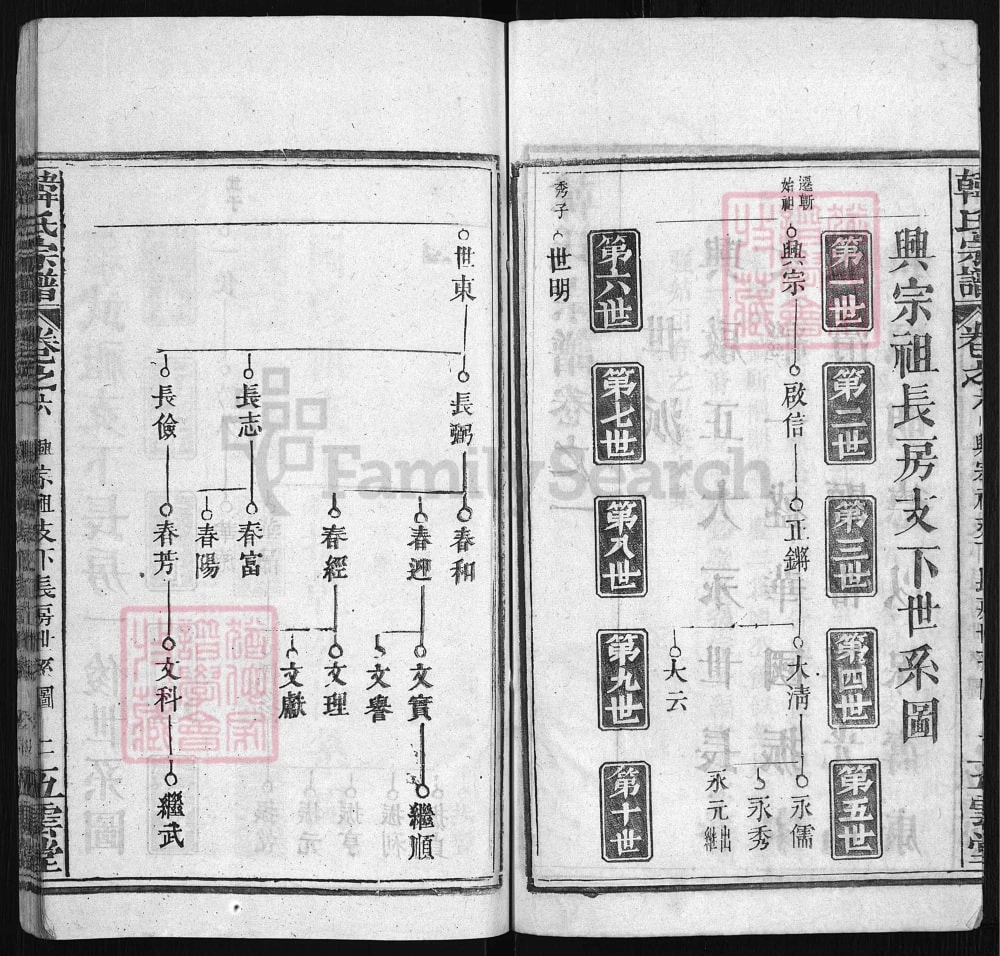 韓氏宗譜
卷之六
五雲堂
興宗祖長房支下世系圖
第一世
第二世
第三世
第四世
第五世
遷蘄
始祖
興宗
啟信
正鏘
大淸
永儒
永秀
永元
出
繼
大云
第六世
第七世
第八世
第九世
第十世
秀子
世明
世東
長弼
春和
春迎
文實
繼順
文譽
春經
文理
文獻
長志
春富
春陽
長儉
春芳
文科
繼武
韓氏宗譜
卷之六
興宗祖支下長房世系圖
二
五雲堂
FamilySearch